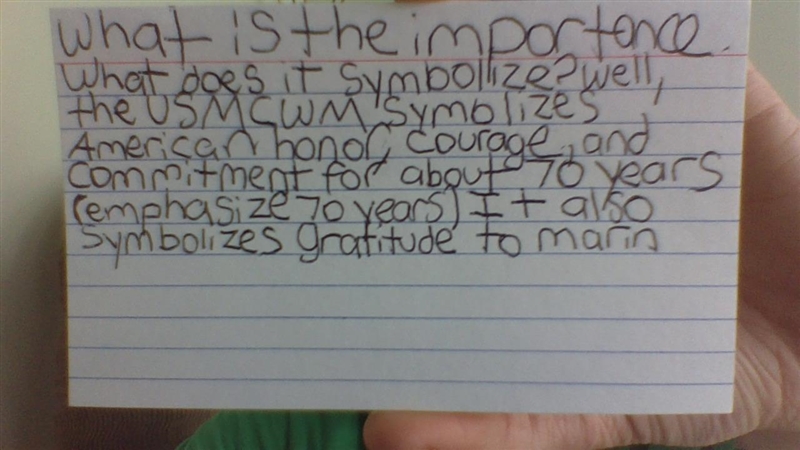 What is the importance.
What does it symbollize? well,
the USMCWM symbolizes
American honor, courage, and
commitment for about 70 years
(emphasize 70 years) It also
symbolizes gratitude to marin